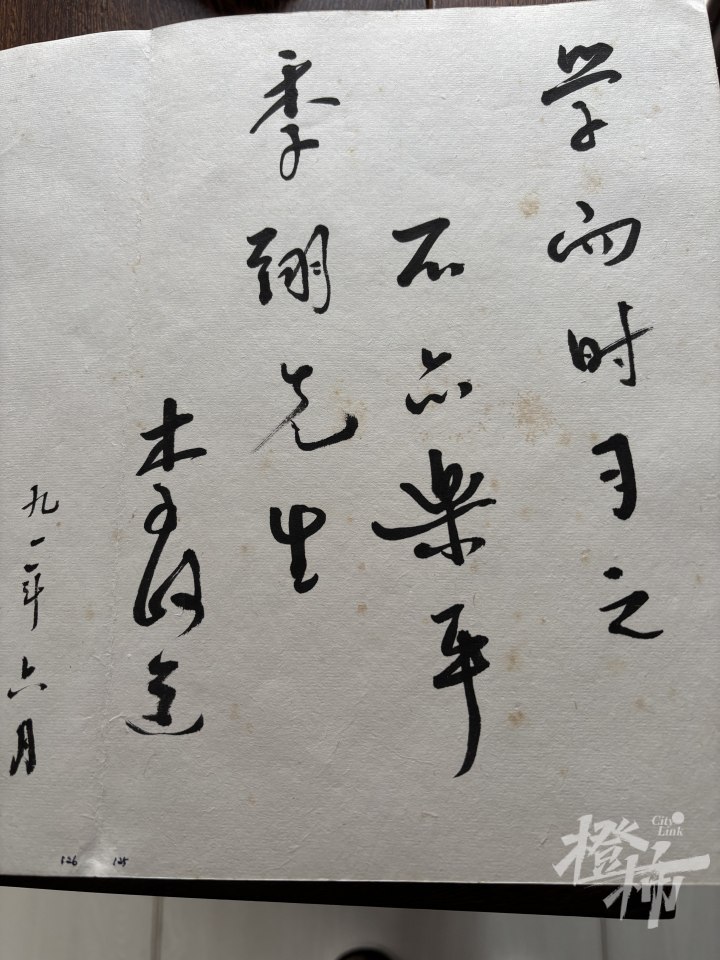 学而时习之
不亦樂乎
季翔先生
李政道
九一年六月
126 125
橙柿
City Link